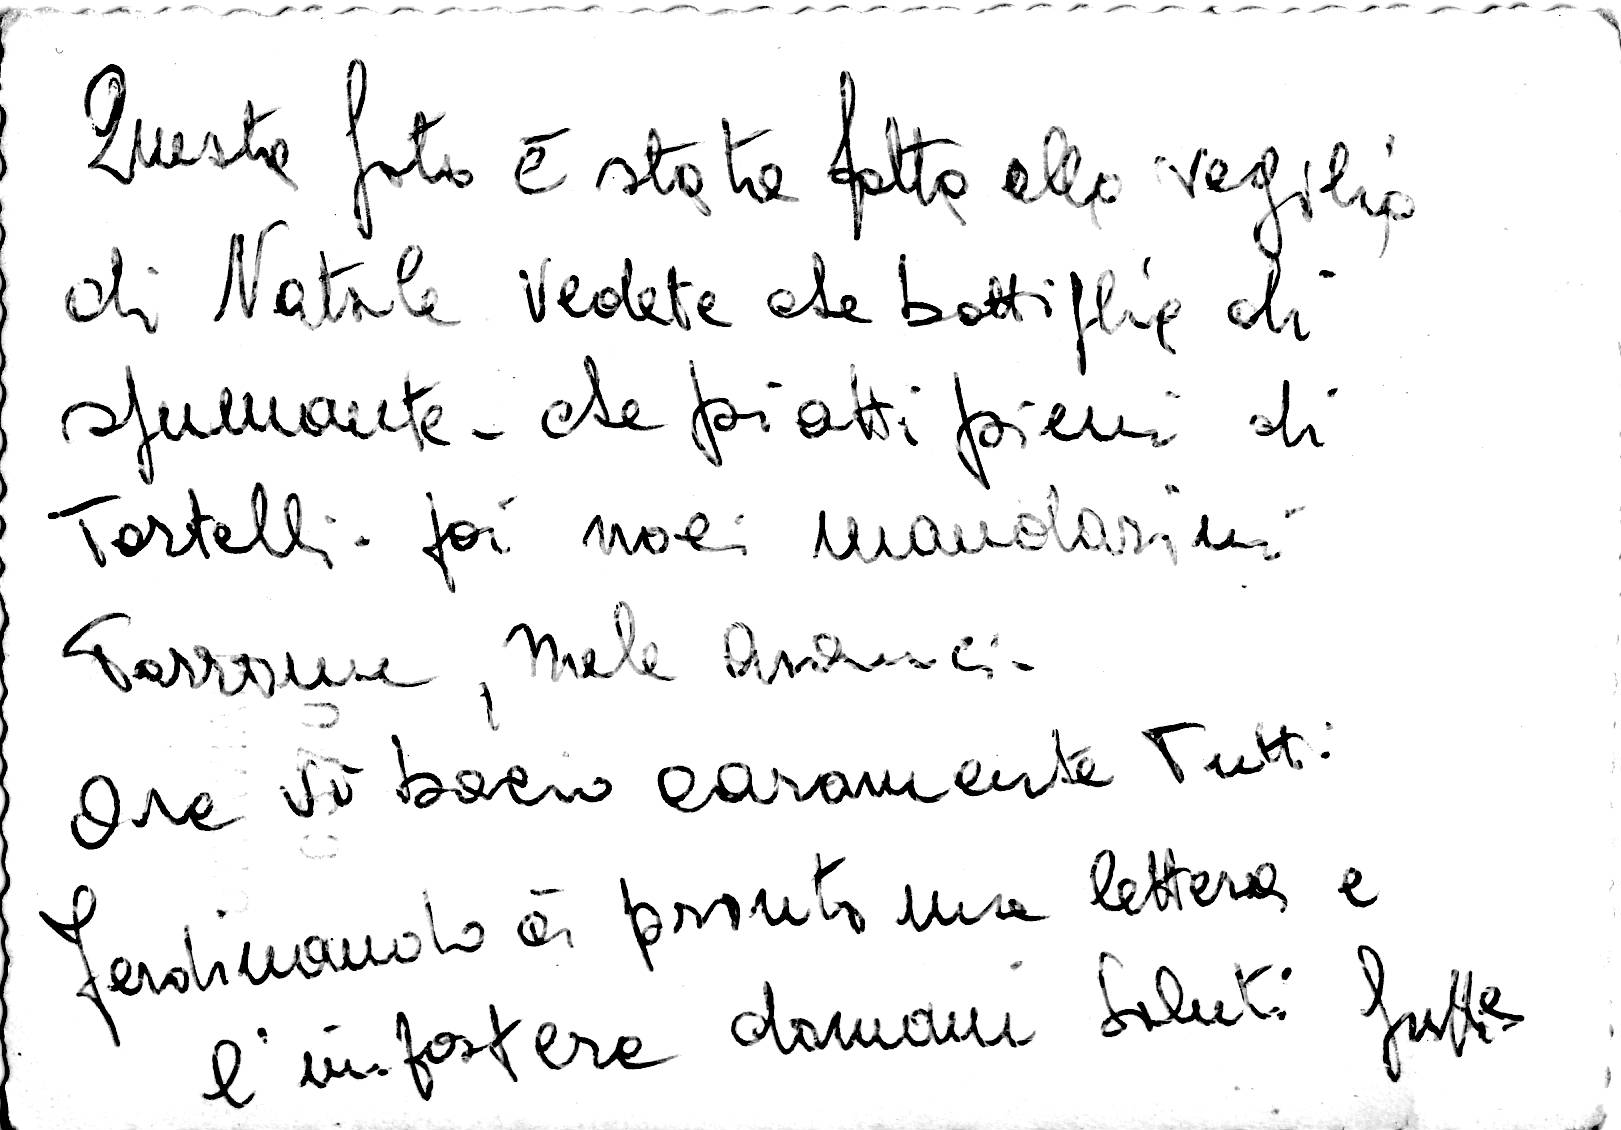 Questa foto è stata fatta alla vegilia
di Natale vedete che bottiglie di
spumante - che piatti pieni di
Tortelli - poi noci mandarini
Torrone, Mele aranci -
Ora vi bacio caramente Tutti
Ferdinando ai pronto una lettera e
l'inpostera domani Saluti